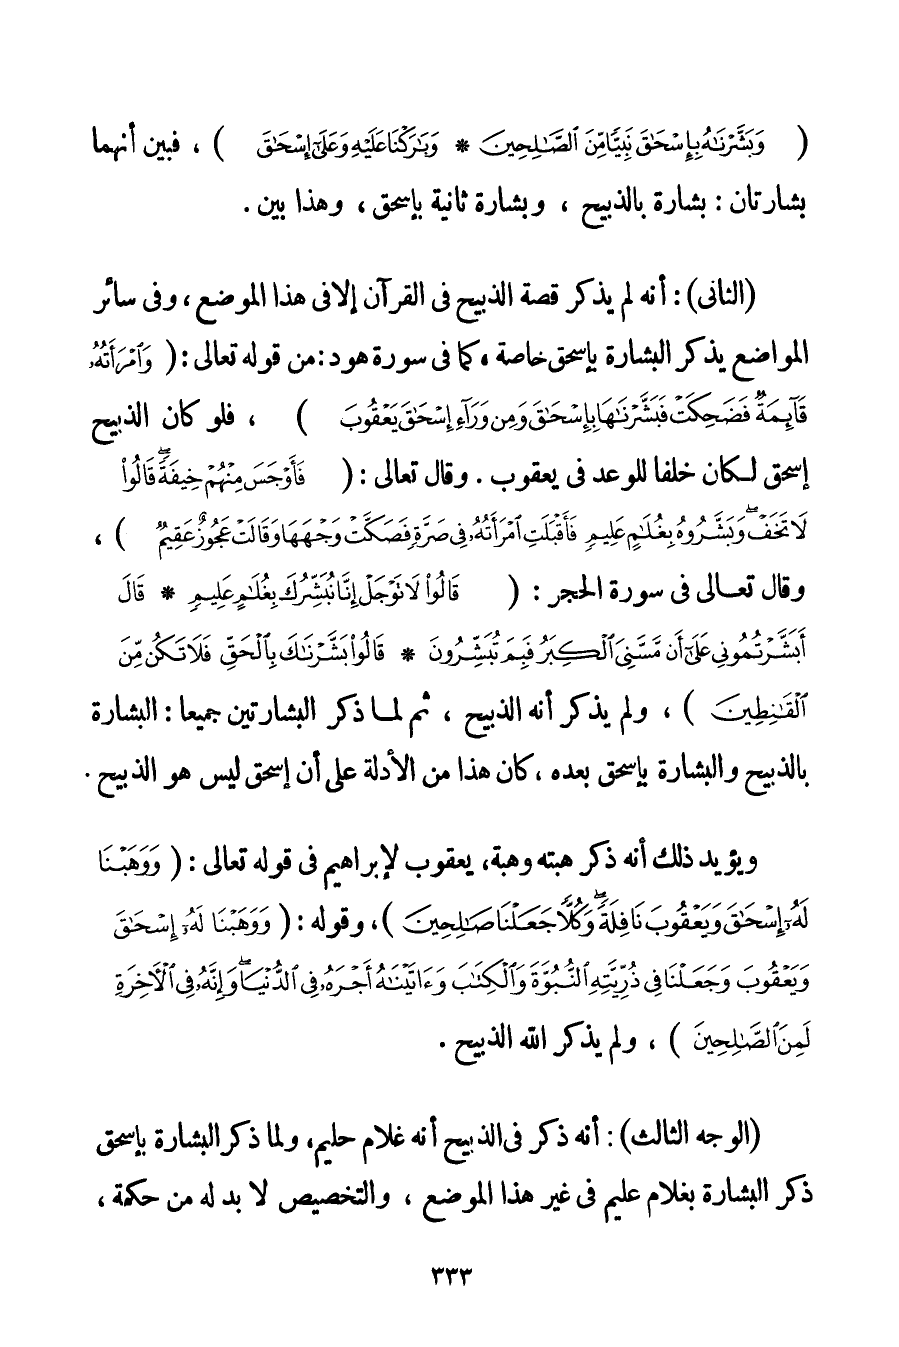 ( وَبَشَّرْنَٰهُ بِإِسْحَٰقَ نَبِيًّا مِّنَ ٱلصَّٰلِحِينَ * وَبَٰرَكْنَا عَلَيْهِ وَعَلَىٰٓ إِسْحَٰقَ ) ، فبين أنهما
بشارتان : بشارة بالذبيح ، وبشارة ثانية بإسحق ، وهذا بين .
(الثانى) : أنه لم يذكر قصة الذبيح فى القرآن إلا فى هذا الموضع ، وفى سائر
المواضع يذكر البشارة بإسحق خاصة ، كما فى سورة هود : من قوله تعالى : ( وَٱمْرَأَتُهُۥ
قَآئِمَةٌ فَضَحِكَتْ فَبَشَّرْنَٰهَا بِإِسْحَٰقَ وَمِن وَرَآءِ إِسْحَٰقَ يَعْقُوبَ ) ، فلو كان الذبيح
إسحق لكان خلفا للوعد فى يعقوب . وقال تعالى : ( فَأَوْجَسَ مِنْهُمْ خِيفَةً ۖ قَالُوا۟
لَا تَخَفْ ۖ وَبَشَّرُوهُ بِغُلَٰمٍ عَلِيمٍ فَأَقْبَلَتِ ٱمْرَأَتُهُۥ فِى صَرَّةٍ فَصَكَّتْ وَجْهَهَا وَقَالَتْ عَجُوزٌ عَقِيمٌ ) ،
وقال تعالى فى سورة الحجر : ( قَالُوا۟ لَا تَوْجَلْ إِنَّا نُبَشِّرُكَ بِغُلَٰمٍ عَلِيمٍ * قَالَ
أَبَشَّرْتُمُونِى عَلَىٰٓ أَن مَّسَّنِىَ ٱلْكِبَرُ فَبِمَ تُبَشِّرُونَ * قَالُوا۟ بَشَّرْنَٰكَ بِٱلْحَقِّ فَلَا تَكُن مِّنَ
ٱلْقَٰنِطِينَ ) ، ولم يذكر أنه الذبيح ، ثم لما ذكر البشارتين جميعا : البشارة
بالذبيح والبشارة بإسحق بعده ، كان هذا من الأدلة على أن إسحق ليس هو الذبيح .
ويؤيد ذلك أنه ذكر هبته وهبة، يعقوب لإبراهيم فى قوله تعالى : ( وَوَهَبْنَا
لَهُۥٓ إِسْحَٰقَ وَيَعْقُوبَ نَافِلَةً ۖ وَكُلًّا جَعَلْنَا صَٰلِحِينَ )، وقوله : ( وَوَهَبْنَا لَهُۥٓ إِسْحَٰقَ
وَيَعْقُوبَ وَجَعَلْنَا فِى ذُرِّيَّتِهِ ٱلنُّبُوَّةَ وَٱلْكِتَٰبَ وَءَاتَيْنَٰهُ أَجْرَهُۥ فِى ٱلدُّنْيَا ۖ وَإِنَّهُۥ فِى ٱلْءَاخِرَةِ
لَمِنَ ٱلصَّٰلِحِينَ ) ، ولم يذكر الله الذبيح .
(الوجه الثالث) : أنه ذكر فى الذبيح أنه غلام حليم، ولما ذكر البشارة بإسحق
ذكر البشارة بغلام عليم فى غير هذا الموضع ، والتخصيص لا بد له من حكمة ،
٣٣٣